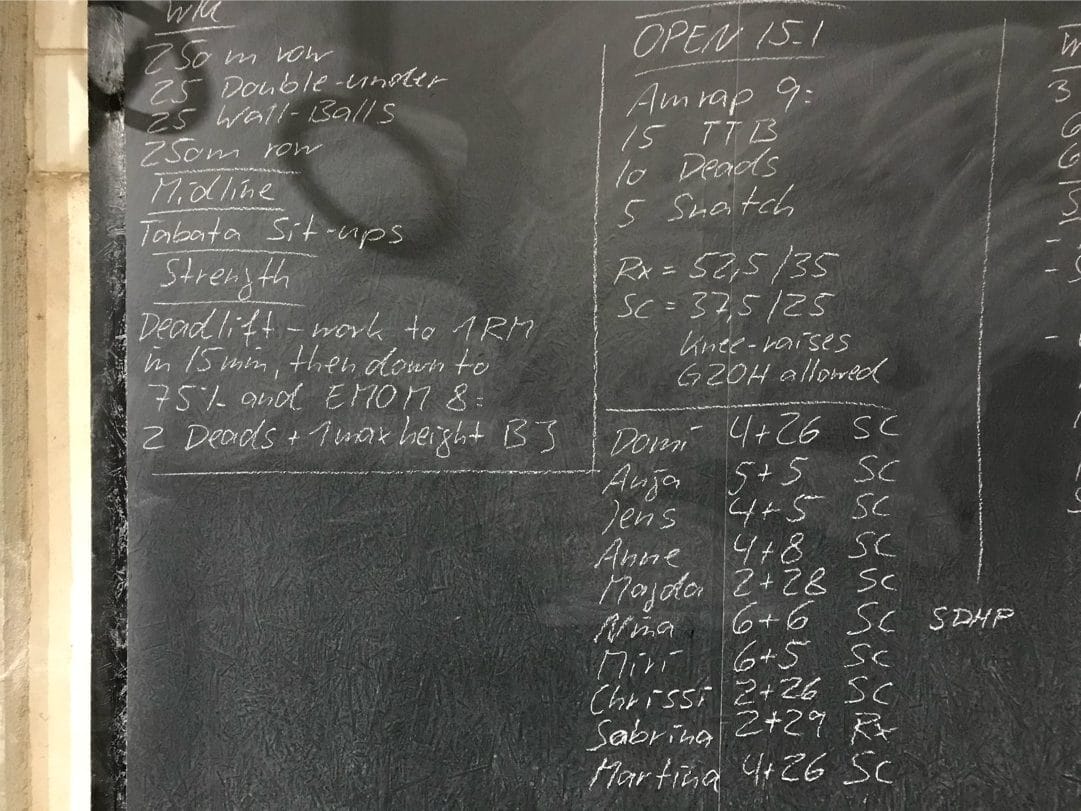 WU
250m row
25 Double-under
25 Wall-Balls
250m row
Midline
Tabata Sit-ups
Strength
Deadlift - work to 1RM
in 15min, then down to
75% and EMOM 8:
2 Deads + 1 max height BJ
OPEN 15.1
Amrap 9:
15 TTB
10 Deads
5 Snatch
Rx = 52,5/35
Sc = 37,5/25
Knee-raises
G2OH allowed
Domi 4+26 SC
Anja 5+5 SC
Jens 4+5 SC
Anne 4+8 SC
Majda 2+28 SC
Nina 6+6 SC SDHP
Miri 6+5 SC
Chrissi 2+26 SC
Sabrina 2+29 Rx
Martina 4+26 SC
W
3
6
6
S
-
- S
-